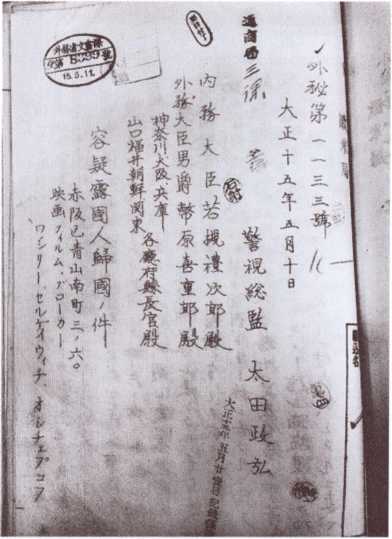 外秘第一一三三號
大正十五年五月十日
警視総監 太田政弘
内務大臣若槻禮次郎殿
外務大臣男爵幣原喜重郎殿
神奈川、大阪、兵庫
山口福井朝鮮関東
各廳府縣長官殿
容疑露國人歸國ノ件
赤坂区青山南町三ノ六〇
映画フィルム、ブローカー
ワシリー、セルゲイウィチ、オシチェプコフ
外務省文書課
15.5.11.